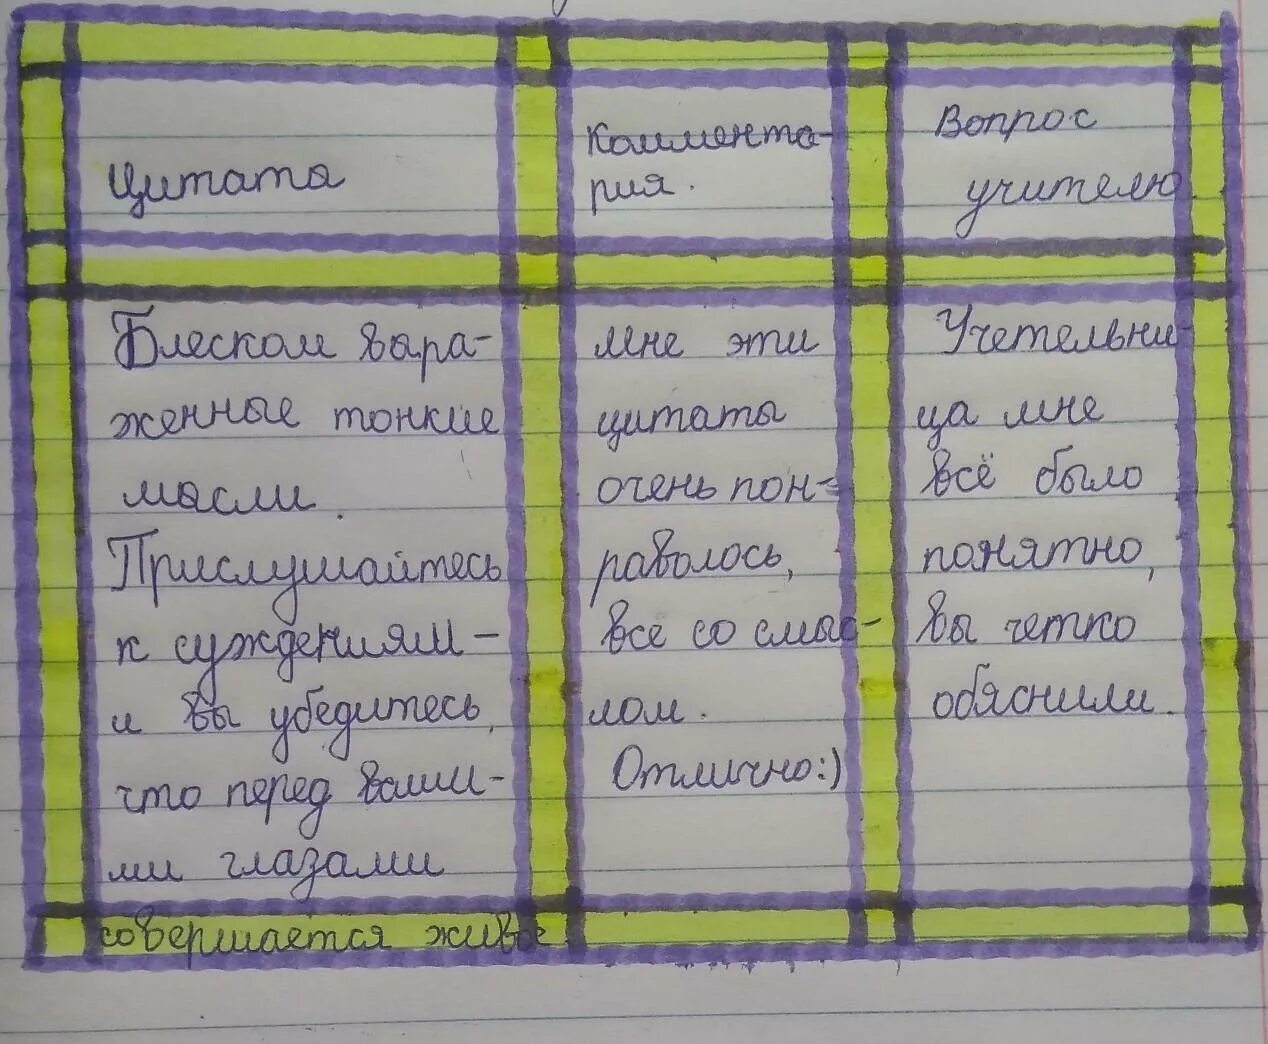 Цитата
Коммента-
рия.
Вопрос
учителю
Блеском выра-
женные тонкие
мысли.
Прислушайтесь
к суждениям -
и вы убедитесь,
что перед вами-
ми глазами
совершается живое
мне эти
цитаты
очень пон-
раволось,
всё со смыс-
лом.
Отлично:)
Учетельни-
ца мне
всё было
понятно,
вы четко
обяснили.